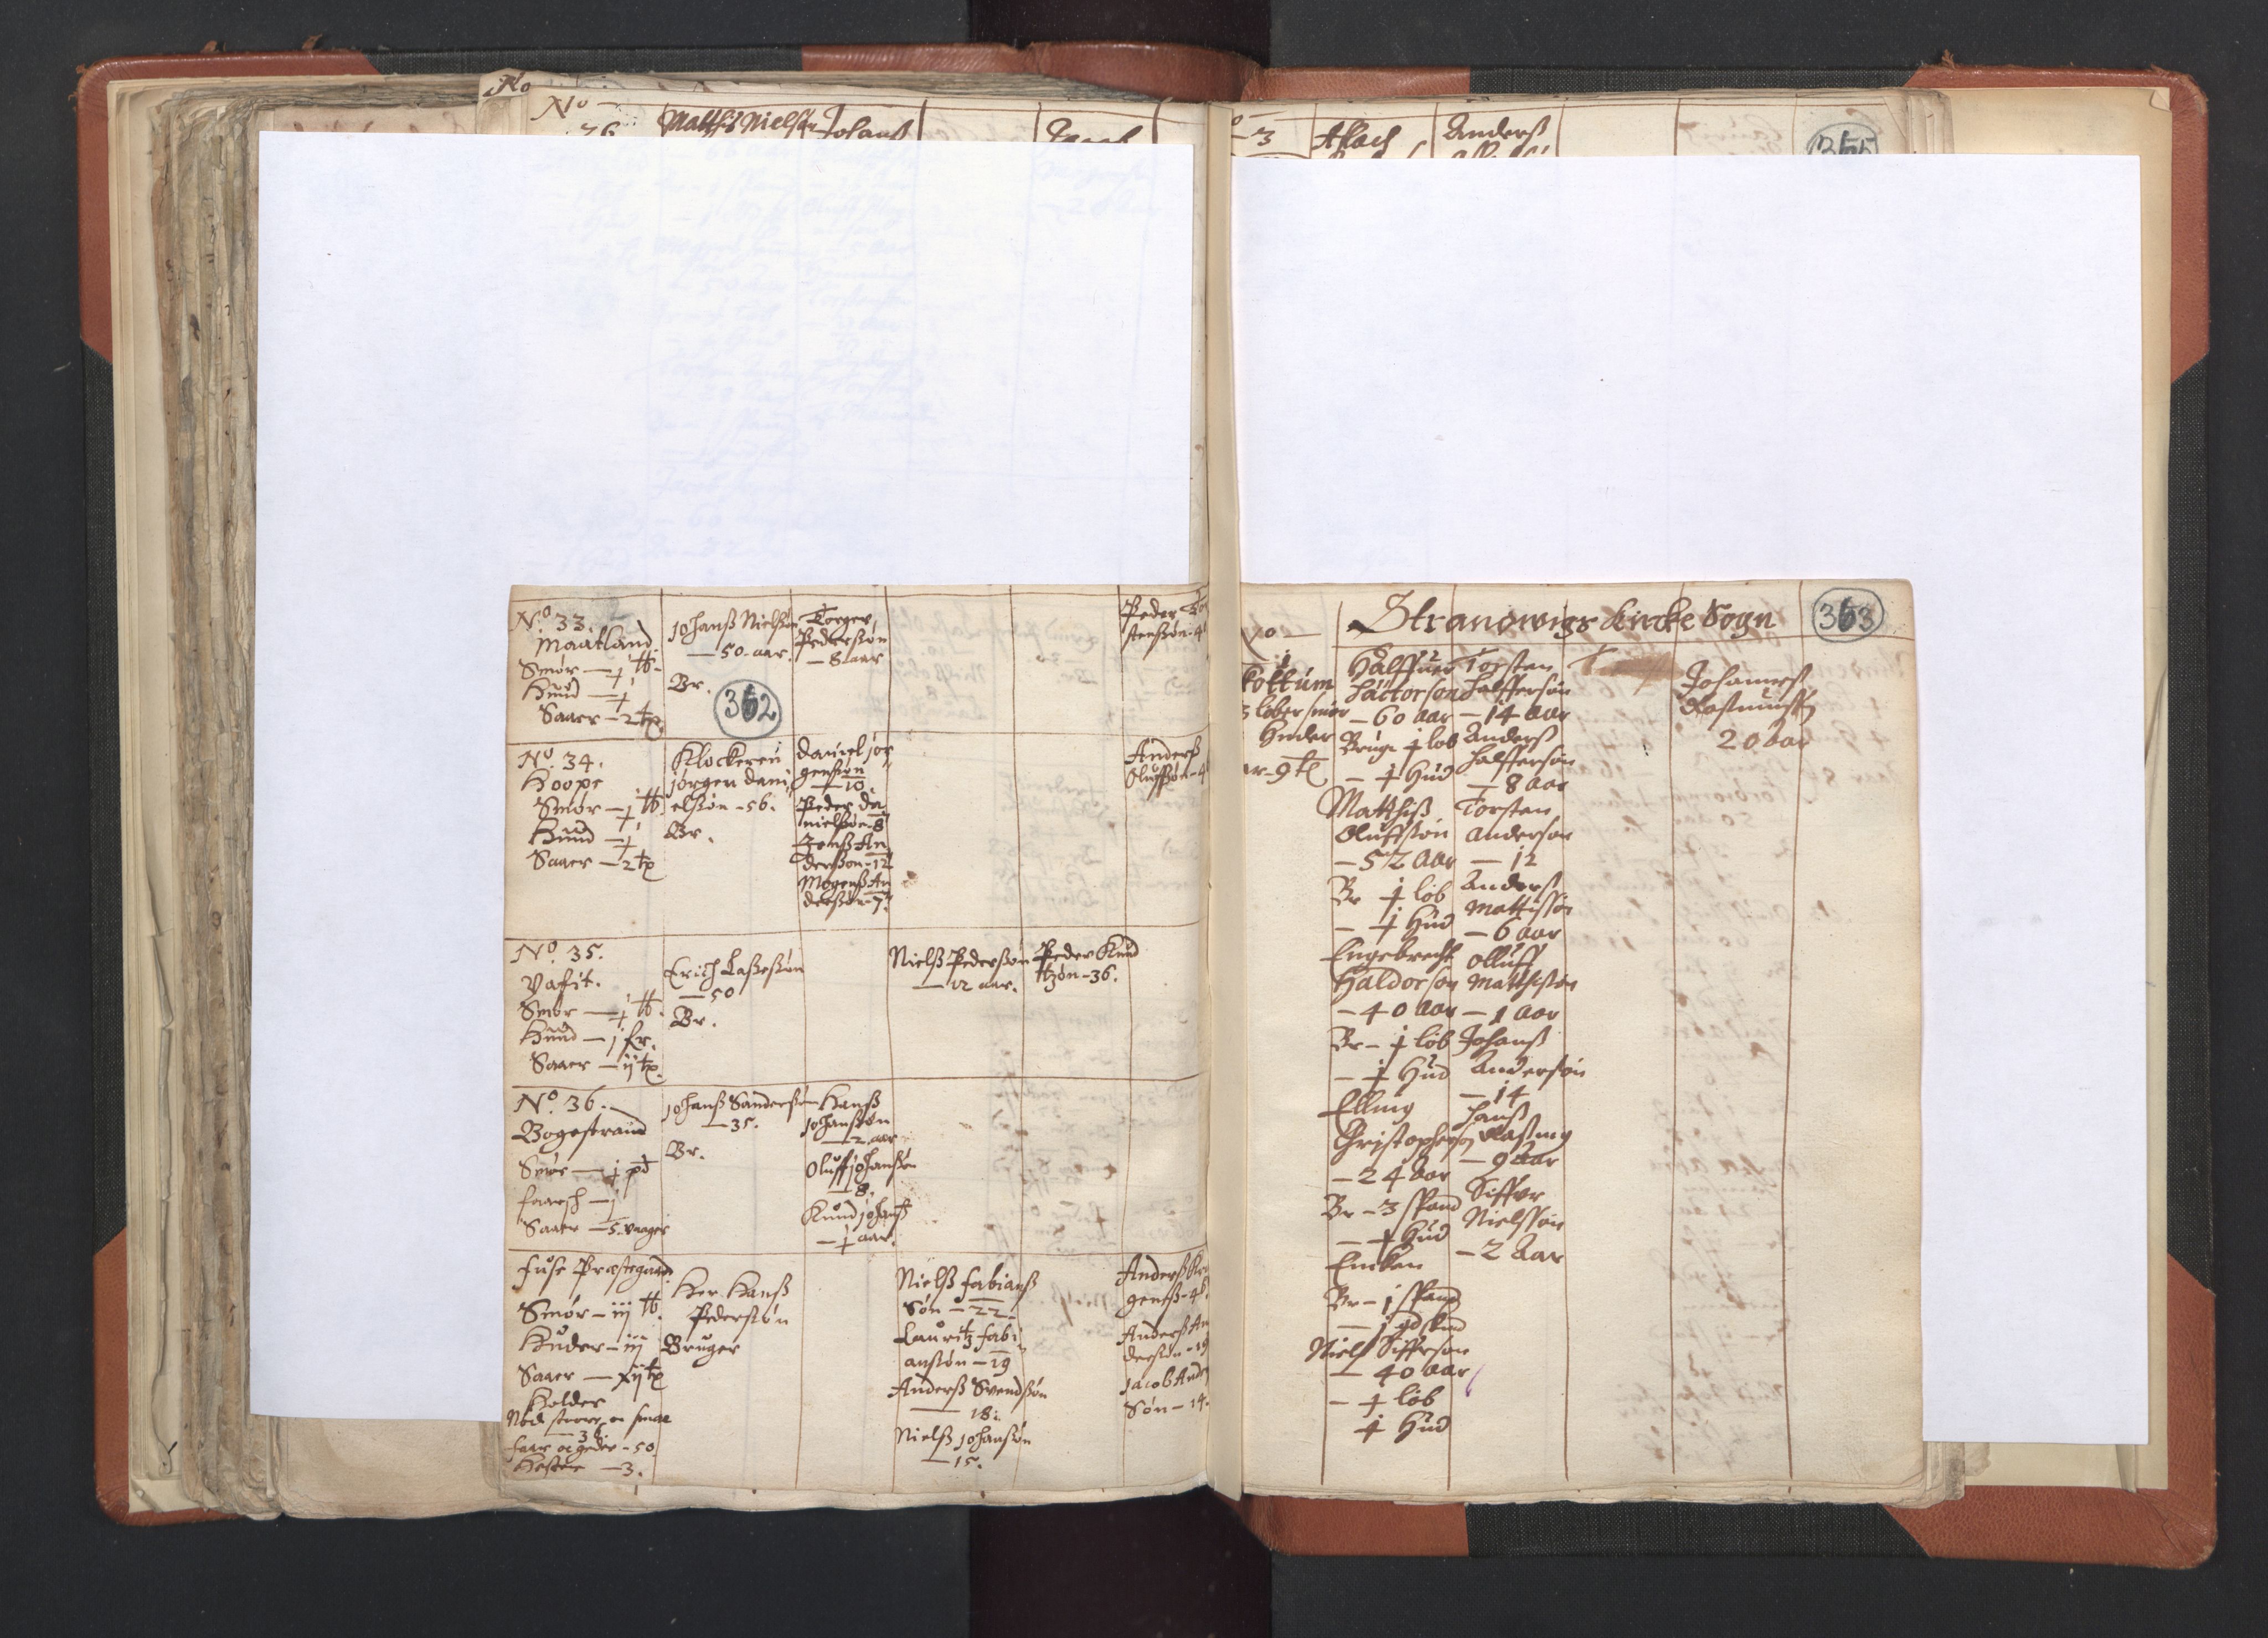 No
No
26
Matthis Nielssøn
Johanß
Jacob
-3
Aslach
Anderß
365
No. 33.
Maatland.
Smør — ½ tb.
Huud — ½
Saaer — 2 tp
Johanß Nielssøn
— 50 aar.
Br.
362
Torger
Pederssøn
— 8 aar
Peder
stenssøn - 4
No. 34.
Hoope
Smør — ½ tb
Huud — ½
Saaer — 2 tp
Klockeren
Jørgen Dani
elssøn - 56.
Br.
Daniel Jør
genssøn
— 10.
Peder Da
nielssøn - 8
Jenß An
derssøn - 12
Mogenß An
derssøn - 7.
Anderß
Oluffssøn - 4
No. 35.
Smør — ½ tb.
Huud — j
Saaer — ij tp.
Erich Lassessøn
— 50
Br.
Nielß Pederssøn
— 12 aar.
Peder Knud
tzøn - 36.
No. 36.
Bogestrand
Smør — ½ pd
faarsk — j
Saaer — 5. vaager
Johanß Sanderssøn
— 35.
Br.
Hanß
Johanssøn
— 2 aar
Oluff Johanssøn
— 8.
Knud Johanß
— ½ aar.
Fuse Præstegaard
Smør — iij tb.
Huder — iij
Saaer — xij tp
Holder
Nød store oc smaa
— 36.
faar oc geder - 50
Hester — 3.
Her Hanß
Pederssøn
Bruger
Nielß Fabianß
Søn — 22.
Lauritz Fabi
anssøn — 19
Anderß Svendssøn
— 18.
Nielß Johanssøn
— 15.
Anderß
Anderß An
derssøn - 19
Jacob Anderß
Søn — 14.
Strandwigs Kircke Sogn
363
No
1
3 løber smør
Huder
Halffuer
Hactorson
— 60 aar
Bruge ½ løb
— ½ Hud
Matthiß
Oluffssøn
— 52 Aar
Br ½ løb
— ½ Hud
Engebrecht
Haldorson
— 40 Aar
Br — ½ løb
— ½ Hud
Elling
Christopherss
— 24 Aar
Br — 3 spand
— ½ Hud
Encken
Br — 1 spand
Niels Siffersøn
— 40 Aar
— ½ løb
½ Hud
Torsten
Halffersøn
— 14 Aar
Anders
Halffersøn
— 8 Aar
Torsten
Anderson
— 12
Anders
Mattissøn
— 6 Aar
Olluff
Matthissøn
— 1 Aar
Johanß
Andersøn
— 14
Hanß
— 9 Aar
Siffer
Nielssøn
— 2 Aar
Johannes
Rasmuss
20 Aar